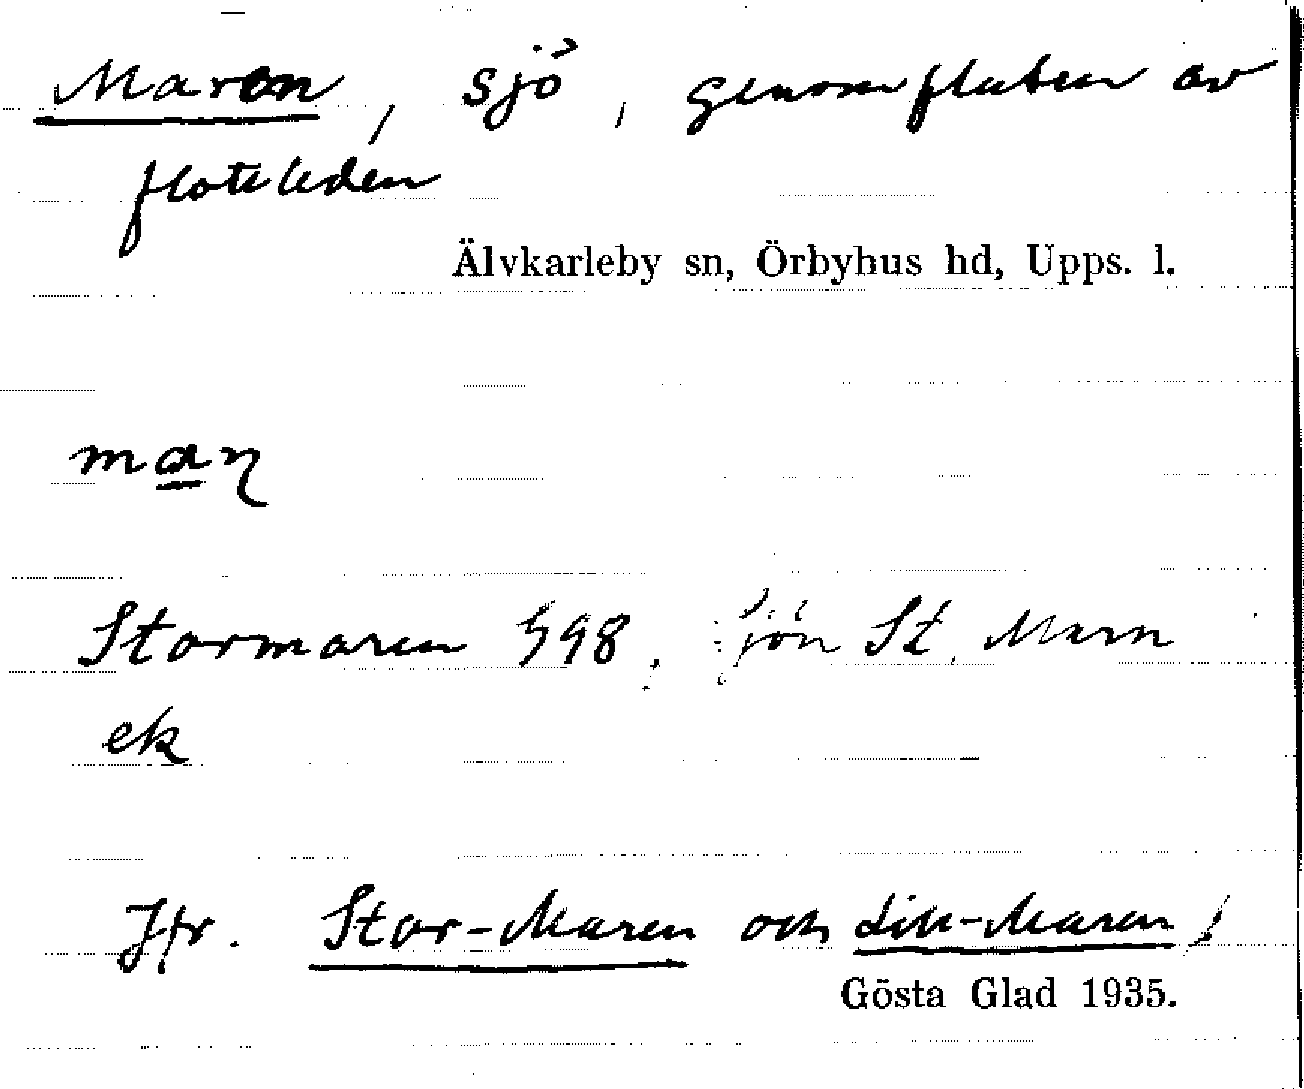 Maren, sjö, genomfluten av
flotleden
Älvkarleby sn, Örbyhus hd, Upps. l.
maɳ
Stormaren 98. Sjön St. Marn
ek
Jfr. Stor-Maren och Lill-Maren!
Gösta Glad 1935.